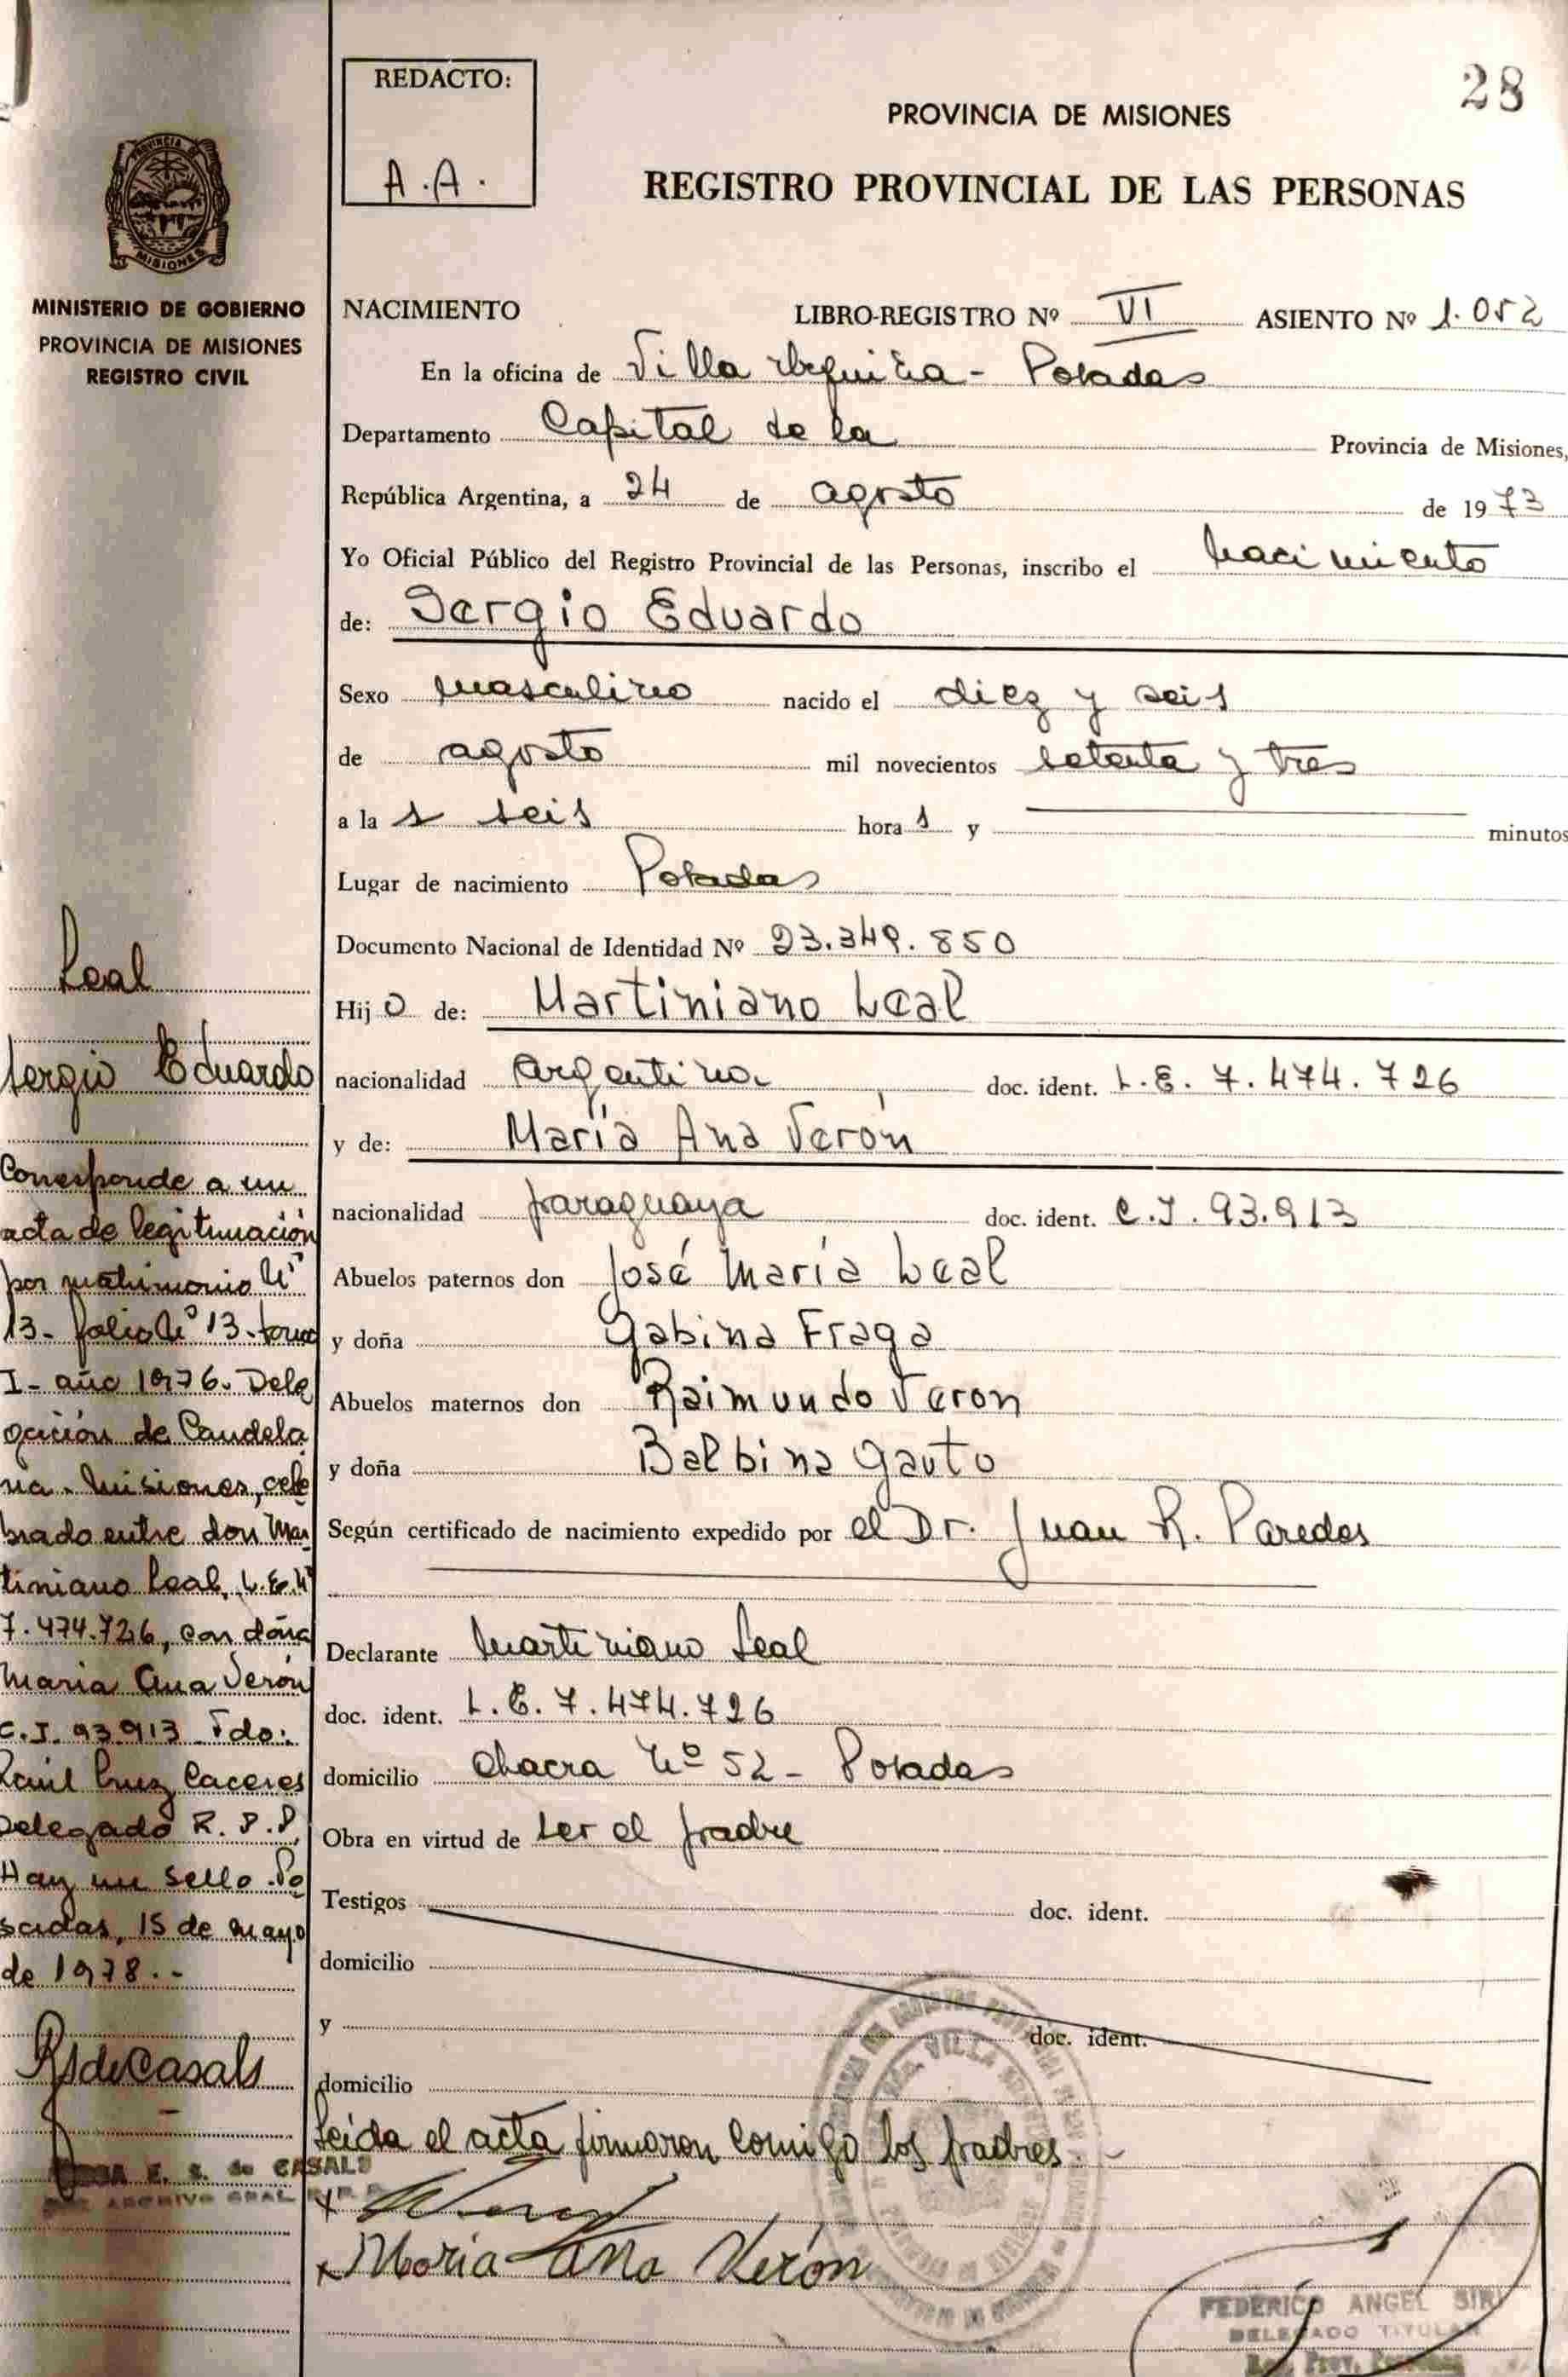 28
REDACTO:
A.A.
PROVINCIA DE MISIONES
REGISTRO PROVINCIAL DE LAS PERSONAS
PROVINCIA DE
MISIONES
MINISTERIO DE GOBIERNO
PROVINCIA DE MISIONES
REGISTRO CIVIL
NACIMIENTO LIBRO-REGISTRO Nº VI ASIENTO Nº 1.052
En la oficina de Villa Urquiza - Posadas
Departamento Capital de la Provincia de Misiones,
República Argentina, a 24 de agosto de 1973
Yo Oficial Público del Registro Provincial de las Personas, inscribo el nacimiento
de: Sergio Eduardo
Sexo masculino nacido el diez y seis
de agosto mil novecientos setenta y tres
a las seis horas y minutos
Lugar de nacimiento Posadas
Documento Nacional de Identidad Nº 23.349.850
Hijo de: Martiniano Leal
nacionalidad argentina, doc. ident. L.E. 7.474.726
y de: María Ana Verón
nacionalidad paraguaya doc. ident. C.I. 93.913
Abuelos paternos don José María Leal
y doña Gabina Fraga
Abuelos maternos don Raimundo Veron
y doña Balbina Gauto
Según certificado de nacimiento expedido por el Dr. Juan R. Paredes
Declarante Martiniano Leal
doc. ident. L.E. 7.474.726
domicilio Chacra Nº 52 - Posadas
Obra en virtud de ser el padre
Testigos doc. ident.
domicilio
y doc. ident.
domicilio
Leida el acta firmaron comigo los padres.-
x
x Maria Ana Verón
FEDERICO ANGEL SIRI
DELEGADO TITULAR
Leal
Sergio Eduardo
Corresponde a un
acta de legitimación
por matrimonio Nº
13- folio Nº 13- tomo
I- año 1976. Dele
gación de Candela
ria - Misiones, cele
brado entre don Mar
tiniano Leal, L.E. Nº
7.474.726, con doña
Maria Ana Verón
C.I. 93.913 Fdo:
Raúl Cruz Caceres
Delegado R.P.P.
Hay un sello. Po
sadas, 15 de mayo
de 1978.-
RSdeCasals
E. S. de CASALS
ARCHIVO GRAL. R.P.P.